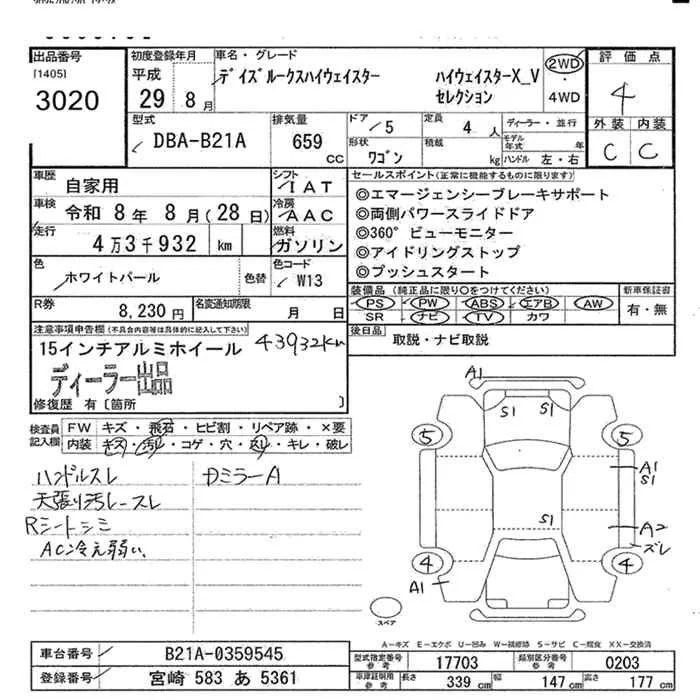 出品番号
[1405]
3020
初度登録年月
平成
29 8月
車名・グレード
デイズルークスハイウェイスター ハイウェイスターX_V
セレクション
2WD
・
4WD
評価点
4
外装 内装
C C
型式
DBA-B21A
排気量
659
CC
ドア
5
定員
4 人
形状
ワゴン
積載
kg
ディーラー・並行
モデル年式 年
ハンドル 左・右
車歴 自家用
シフト
IAT
車検 令和 8年 8月(28日)
冷房
AAC
走行
4万3千932 km
燃料
ガソリン
色
ホワイトパール 色替
色コード
W13
R券
8,230円
名変通知期限
月 日
セールスポイント(正常に機能するものに限ります)
◎エマージェンシーブレーキサポート
◎両側パワースライドドア
◎360°ビューモニター
◎アイドリングストップ
◎プッシュスタート
装備品 (純正品に限り○をつけてください)
PS PW ABS エアB AW
SR ナビ TV カワ
新車保証書
有・無
後日品
取説・ナビ取説
注意事項申告欄(不具合内容等は具体的に記入して下さい)
15インチアルミホイール 43932km
ディーラー出品
修復歴 有〔箇所 〕
検査員記入欄
FW キズ・飛石・ヒビ割・リペア跡・×要
内装 キズ・汚れ・コゲ・穴・スレ・キレ・破レ
ハンドルスレ
天張り汚レースレ
Rシートシミ
AC冷え弱い、
カミラーA
A1
S1 S1
5 5
A1
S1
S1
A2
ズレ
4 4
A1
スペア
A-キズ E-エクボ U-凹み W-補修跡 S-サビ C-腐食 XX-交換済
車台番号 B21A-0359545
登録番号 宮崎 583 あ 5361
型式指定番号
参考
17703
類別区分番号
参考
0203
車庫証明用
参考
長さ 339 cm
幅 147 cm
高さ 177 cm